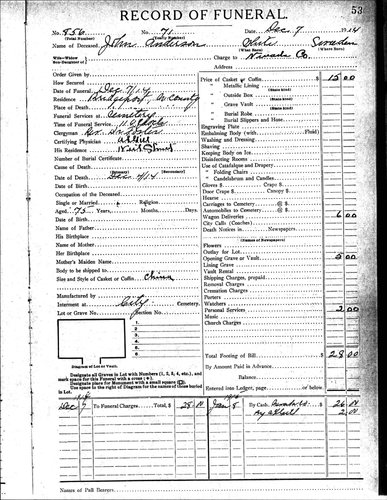 RECORD OF FUNERAL.
53
No. 856 No. 71 Date Dec 7 1914
(Total Number) (Yearly Number)
Name of Deceased John Anderson White Sweden
(What Race) (Where Born)
Wife—Widow
Son-Daughter of
Charge to Nevada Co.
Address
Order Given by
How Secured
Date of Funeral Dec 7/14
Residence Bridgeport, Co county
Place of Death
Funeral Services at Cemetery
Time of Service
Clergyman Rev.
Certifying Physician
His Residence
Number of Burial Certificate
Cause of Death
(Primary) (Secondary)
Date of Death Dec 4/14
Date of Birth
Occupation of the Deceased
Single or Married Religion
Aged 75 Years, Months, Days.
Name of Father
His Birthplace
Name of Mother
Her Birthplace
Mother's Maiden Name
Body to be shipped to
Size and Style of Casket or Coffin
Manufactured by
Interment at City Cemetery.
Lot or Grave No. Section No.
1
2
3
4
5
6
Diagram of Lot or Vault.
Designate all Graves in Lot with Numbers (1, 2, 3, 4, etc.), and
mark space for this Funeral with a cross (+).
Designate place for Monument with a small square (□).
Use space to right of Diagram for the names of those buried
Price of Casket or Coffin $ 15 00
" Metallic Lining
(State kind)
" Outside Box
(State kind)
" Grave Vault
(State kind)
" Burial Robe
" Burial Slippers and Hose
Engraving Plate
Embalming Body (with Fluid)
Washing and Dressing
Shaving
Keeping Body on Ice
Disinfecting Rooms
Use of Catafalque and Drapery
" Folding Chairs
" Candelabrum and Candles
Gloves $ Crape $
Door Crape $ Canopy $
Hearse
Carriages to Cemetery @ $
Automobiles to Cemetery @ $
Wagon Deliveries 6 00
City Calls (Coaches)
Death Notices in Newspapers
(Names of Newspapers)
Flowers
Outlay for Lot
Opening Grave or Vault 5 00
Lining Grave
Vault Rental
Shipping Charges, prepaid
Removal Charges
Cremation Charges
Porters
Watchers
Personal Services 2 00
Music
Church Charges
Total Footing of Bill $ 28 00
By Amount Paid in Advance
Balance
Entered into Ledger, page or below.
Dec 7 To Funeral Charges Total, $ 28 00 Jan 8 By Cash 26 00
2 00
Names of Pall Bearers